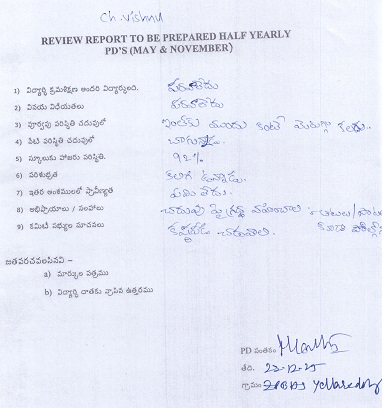 Ch. Vishnu
REVIEW REPORT TO BE PREPARED HALF YEARLY
PD'S (MAY & NOVEMBER)
1) విద్యార్థి క్రమశిక్షణ అందరి విద్యార్థులది. పరవాలేదు
2) వినయ విధేయతలు పరవాలేదు
3) పూర్వపు పరిస్థితి చదువులో ఇంతకు ముందు కంటే మెరుగ్గా కలదు.
4) నేటి పరిస్థితి చదువులో బాగున్నది.
5) స్కూలుకు హాజరు పరిస్థితి. 92%
6) పరిశుభ్రత కలిగి ఉన్నాడు.
7) ఇతర అంశములలో ప్రావీణ్యత ఏమి లేదు.
8) అభిప్రాయాలు / సలహాలు చదువు పై శ్రద్ధ వహించాలి
9) కమిటీ సభ్యుల సూచనలు కష్టపడి చదవాలి.
జతపరచవలసినవి –
a) మార్కుల పత్రము
b) విద్యార్థి దాతకు వ్రాసిన ఉత్తరము
PD సంతకం
తేది. 22-12-25
గ్రామం Yellareddy